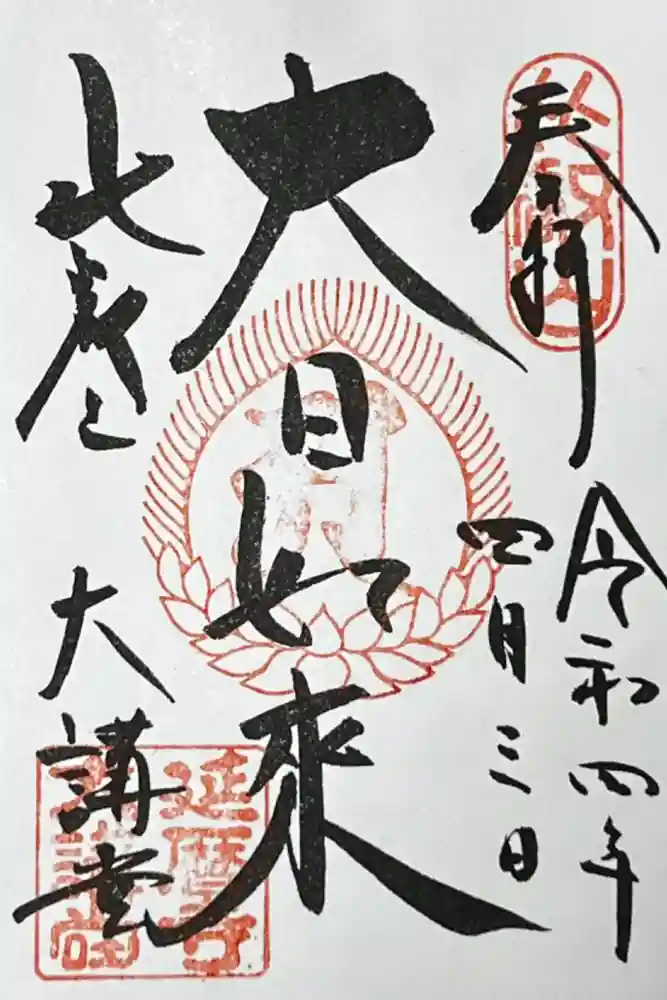 奉拝
令和四年
四月三日
大日如來
比叡山
大講堂
延暦寺
大講堂